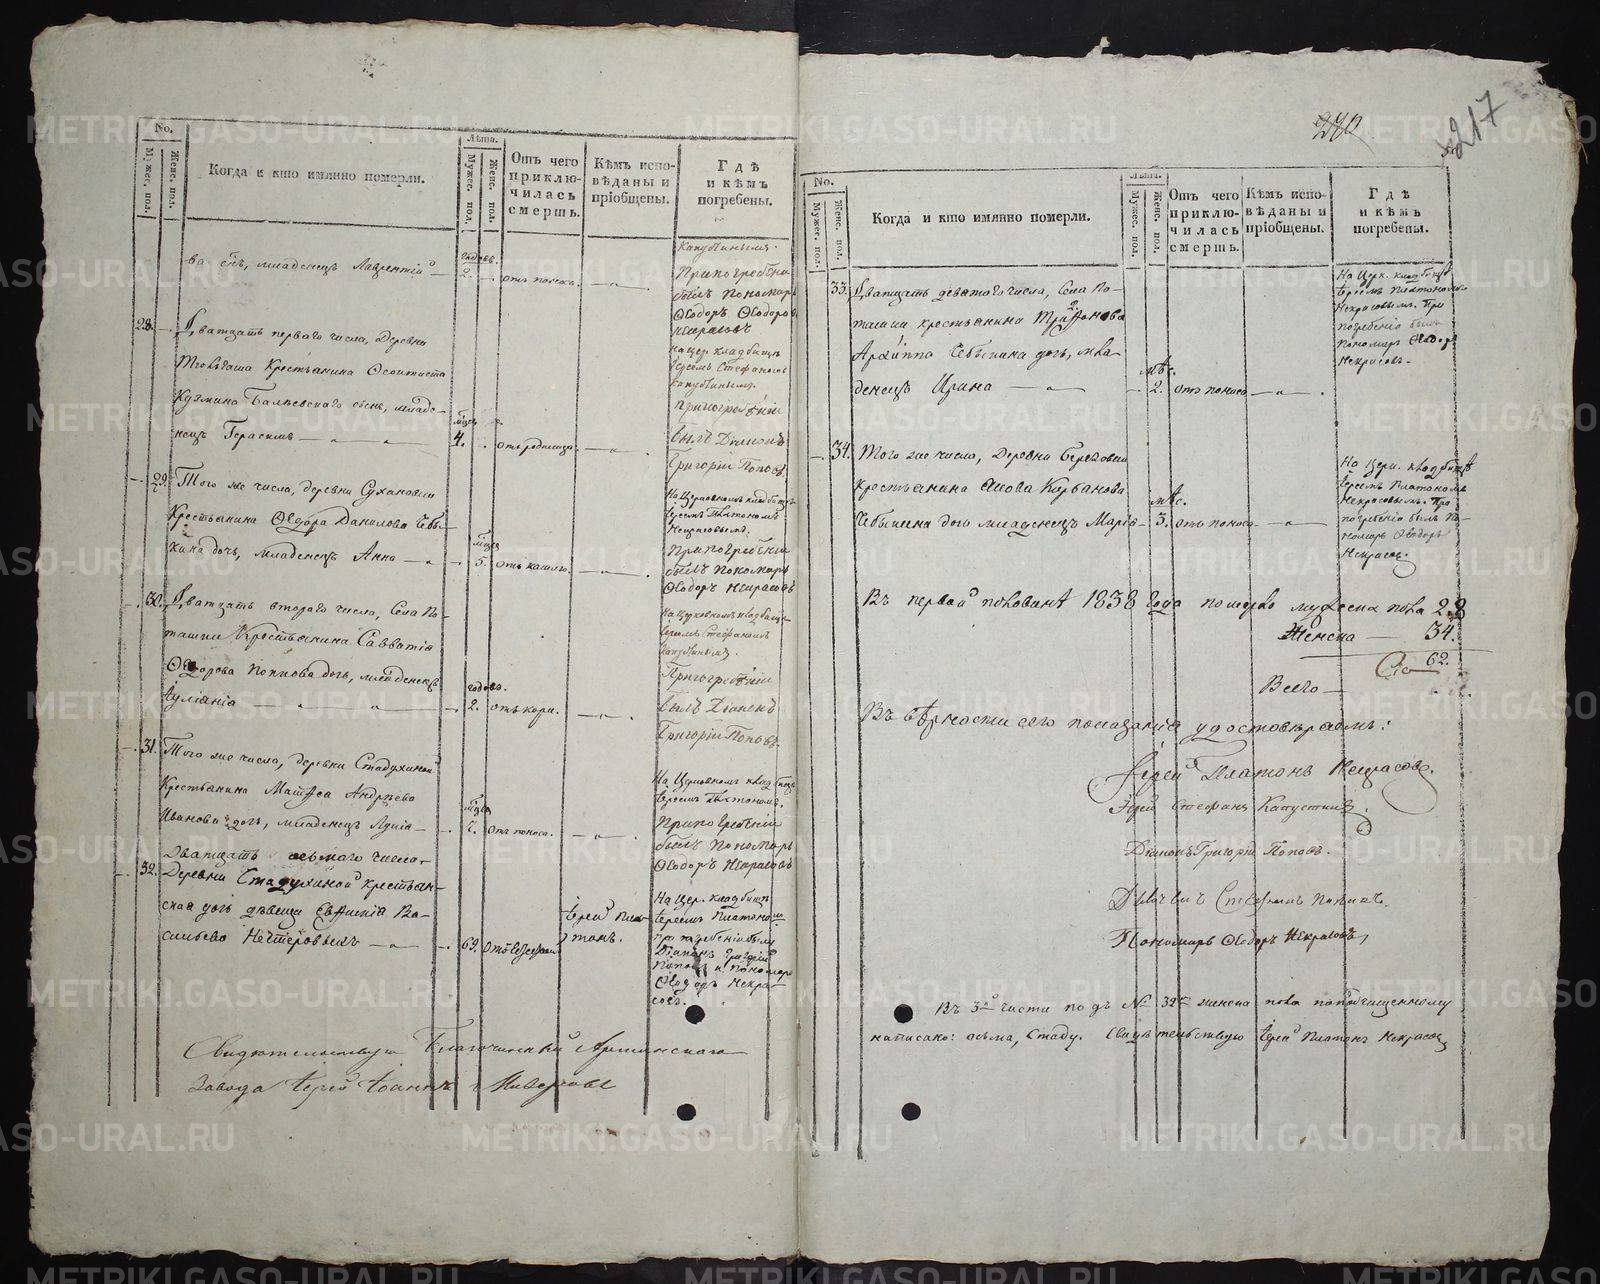 240
217
No.
Мужес. пол.
Женс. пол.
Когда и кто имянно померли.
Лѣта.
Мужес. пол.
Женс. пол.
Отъ чего приключилась смерть.
Кѣмъ исповѣданы и пріобщены.
Гдѣ и кѣмъ погребены.
ва сынъ, младенецъ Лаврентій
годовъ
2.
отъ поноса.
Капустинымъ.
При погребеніи
былъ Пономарь
Ѳеодоръ Ѳеодоровъ
Некрасовъ
28.
Дватцать перваго числа, Деревни
Крестьянина
Козмина сынъ, младе-
нецъ Герасимъ
мѣсяц
4.
отъ родимца.
на цер. кладбищѣ
Іереемъ Стефаномъ
Капустинымъ.
При погребеніи
былъ Діаконъ
Григорій Поповъ.
29.
Того же числа, деревни Сухановки
Крестьянина Ѳедора Данилова Чебы-
кина дочь, младенецъ Анна
мѣсяц
5.
отъ кашлю.
На Церковномъ кладбищѣ
Іереемъ Платономъ
Некрасовымъ.
При погребеніи
былъ Пономарь
Ѳеодоръ Некрасовъ
30.
Дватцать втораго числа, Села По-
ташки Крестьянина Савватія
Ѳедорова Попкова дочь, младенецъ
Іуліанія
годовъ.
2.
отъ кори.
на Церковномъ кладбищѣ
Іереемъ Стефаномъ
Капустинымъ.
При погребеніи
былъ Діаконъ
Григорій Поповъ.
31.
Того же числа, деревни Стадухиной
Крестьянина Матѳеа Андрѣева
Иванова дочь, младенецъ
мѣсяц
отъ поноса.
На Церковномъ кладбищѣ
Іереемъ Платономъ.
При погребеніи
былъ Пономарь
Ѳеодоръ Некрасовъ
Дватцать осьмаго числа,
32.
Деревни Стадухиной крестьян-
ская дочь дѣвица Евѳимія Ва-
сильева
62.
Іерей Пла-
тонъ.
На Цер. кладбищѣ
Іереемъ Платономъ
при погребеніи были
Діаконъ Григорій
Поповъ и пономарь
Ѳеодоръ Некра-
совъ.
Свидѣтельствую Благочинный Артинскаго
Завода Іерей Іоаннъ
No.
Мужес. пол.
Женс. пол.
Когда и кто имянно померли.
Лѣта.
Мужес. пол.
Женс. пол.
Отъ чего приключилась смерть.
Кѣмъ исповѣданы и пріобщены.
Гдѣ и кѣмъ погребены.
33.
Дватцать девятаго числа, Села По-
ташки крестьянина Трифонова
Чебыкина дочь, мла-
денецъ Ирина
мѣс.
2.
отъ поноса
На Церк. кладбищѣ
Іереемъ Платономъ
Некрасовымъ. При
погребеніи былъ
Пономарь Ѳеодоръ
Некрасовъ.
34.
Того же числа, Деревни Березовки
крестьянина Якова Карбанова
Чебыкина дочь младенецъ Марія
мѣс.
3.
отъ поноса
На Церк. кладбищѣ
Іереемъ Платономъ
Некрасовымъ. При
погребеніи былъ По-
номарь Ѳеодоръ
Некрасовъ.
Въ первой половинѣ 1838 года померло мужеска пола 28
Женска — 34.
62.
Всего —
Въ вѣрности сего показанія удостовѣряемъ:
Іерей Платонъ Некрасовъ.
Іерей Стефанъ Капустинъ.
Діаконъ Григорій Поповъ.
Дьячекъ Стефанъ Поповъ.
Пономарь Ѳеодоръ Некрасовъ,
Въ 3й части подъ № 32м женска пола по подчищенному
написано: осьма, Стаду. Свидѣтельствую Іерей Платонъ Некрасовъ
METRIKI.GASO-URAL.RU